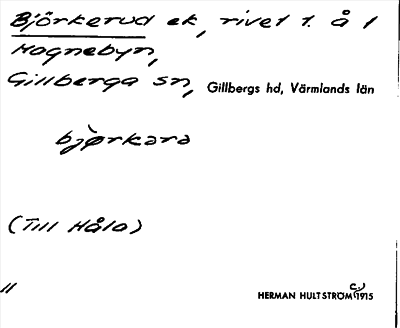 Björkerud ek, rivet 1. å 1
Hognebyn,
Gillberga sn, Gillbergs hd, Värmlands län
bjørkara
(Till Håla)
11
HERMAN HULTSTRÖM C.) 1915